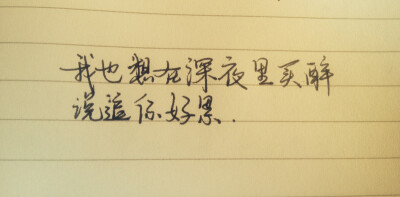 我也想在深夜里买醉
说追你好累.